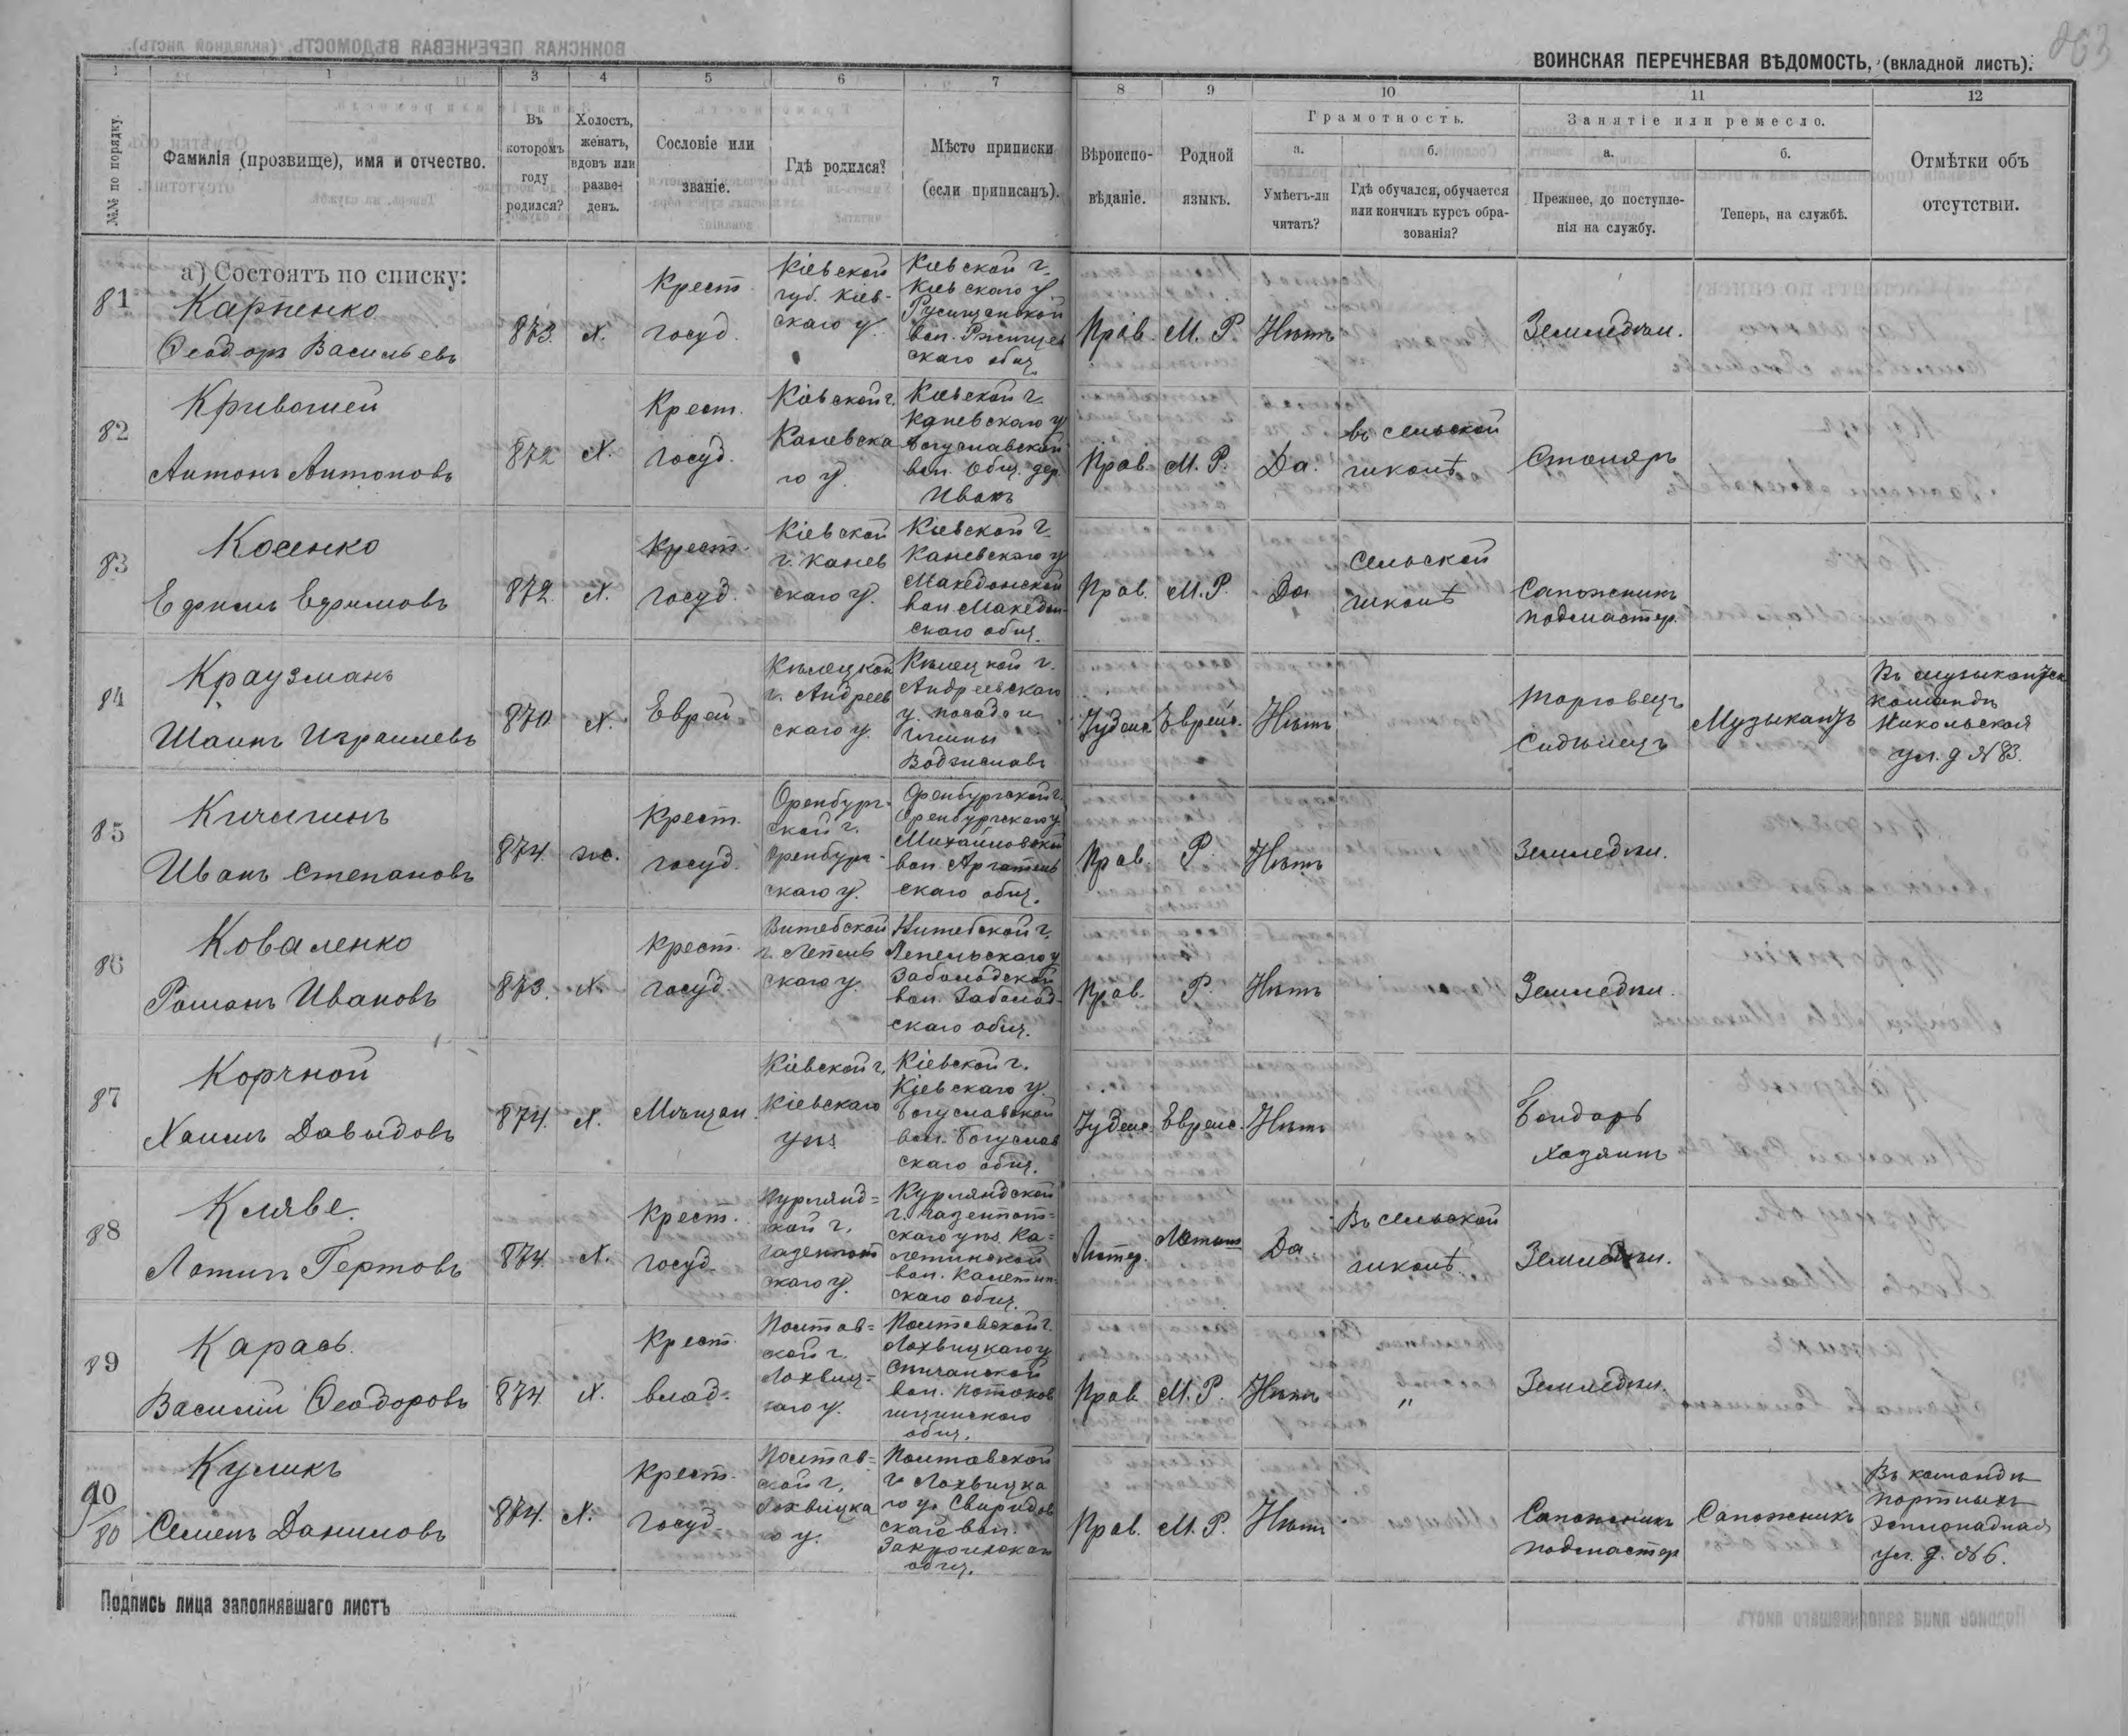 863
ВОИНСКАЯ ПЕРЕЧНЕВАЯ ВѢДОМОСТЬ, (вкладной листъ).
1 1 3 4 5 6 7 8 9 10 11 12
№№ по порядку.
Фамилія (прозвище), имя и отчество.
Въ которомъ году родился?
Холостъ, женатъ, вдовъ или разведенъ.
Сословіе или званіе.
Гдѣ родился?
Мѣсто приписки (если приписанъ).
Вѣроисповѣданіе.
Родной языкъ.
Грамотность.
а. Умѣетъ-ли читать?
б. Гдѣ обучался, обучается или кончилъ курсъ образованія?
Занятіе или ремесло.
а. Прежнее, до поступленія на службу.
б. Теперь, на службѣ.
Отмѣтки объ отсутствіи.
а) Состоятъ по списку:
81 Карпенко Ѳеодоръ Васильевъ
873. Х. Крест. госуд.
Кіевской губ. Кіевскаго у.
Кіевской г. Кіевскаго у. вол. Ржищевскаго общ.
Прав. М. Р. Нѣтъ Земледѣл.
82 Кривошеи Антонъ Антоновъ
872 Х. Крест. госуд.
Кіевской г. Каневскаго у.
Кіевской г. Каневскаго у. Богуславской вол. Общ. дер.
Прав. М. Р. Да. въ сельской школѣ Столяръ
83 Косенко Ефимъ Ефимовъ
872. Х. Крест. госуд.
Кіевской г. Каневскаго у.
Кіевской г. Каневскаго у. Македонской вол. Македонскаго общ.
Прав. М. Р. Да Сельской школѣ Сапожникъ подмастер.
84 Краузманъ Шаинъ Израилевъ
870 Х. Еврей
Кѣлецкой г. Андреевскаго у.
Кѣлецкой г. Андреевскаго у. посада и гмины Водзиславъ
Іудейс. Еврейс. Нѣтъ Торговецъ Сидѣлецъ Музыкантъ
Въ музыкантск. командѣ Никольская ул. д. № 83.
85 Кичигинъ Иванъ Степановъ
874. ж. Крест. госуд.
Оренбургской г. Оренбургскаго у.
Оренбургской г. Оренбургскаго у. Михайловской вол. скаго общ.
Прав. Р. Нѣтъ Земледѣл.
86 Коваленко Романъ Ивановъ
873. Х. Крест. госуд.
Витебской г. Лепельскаго у.
Витебской г. Лепельскаго у. вол. скаго общ.
Прав. Р. Нѣтъ Земледѣл.
87 Корчной Хаимъ Давыдовъ
874. Х. Мѣщан.
Кіевской г. Кіевскаго уѣз.
Кіевской г. Кіевскаго у. Богуславской вол. Богуславскаго общ.
Іудейс. Еврейс. Нѣтъ Бондарь Хозяинъ
88 Клявe. Гертовъ
874. Х. Крест. госуд.
Курляндской г. Газенпотскаго у.
Курляндской г. Газенпотскаго уѣз. Калетинской вол. Калетинскаго общ.
Лютер. Латыш Да. Въ сельской школѣ. Земледѣл.
89 Карась. Василій Ѳеодоровъ
874. Х. Крест. влад.
Полтавской г. Лохвицкаго у.
Полтавской г. Лохвицкаго у. вол. общ.
Прав. М. Р. Нѣтъ „ Земледѣл.
90/80 Куликъ Семенъ Даниловъ
874. Х. Крест. госуд.
Полтавской г. Лохвицкаго у.
Полтавской г. Лохвицкаго у. Свиридовскаго вол. общ.
Прав. М. Р. Нѣтъ Сапожникъ подмастер Сапожникъ
Въ командѣ портныхъ Эспланадная ул. д. № 6.
Подпись лица заполнявшаго листъ